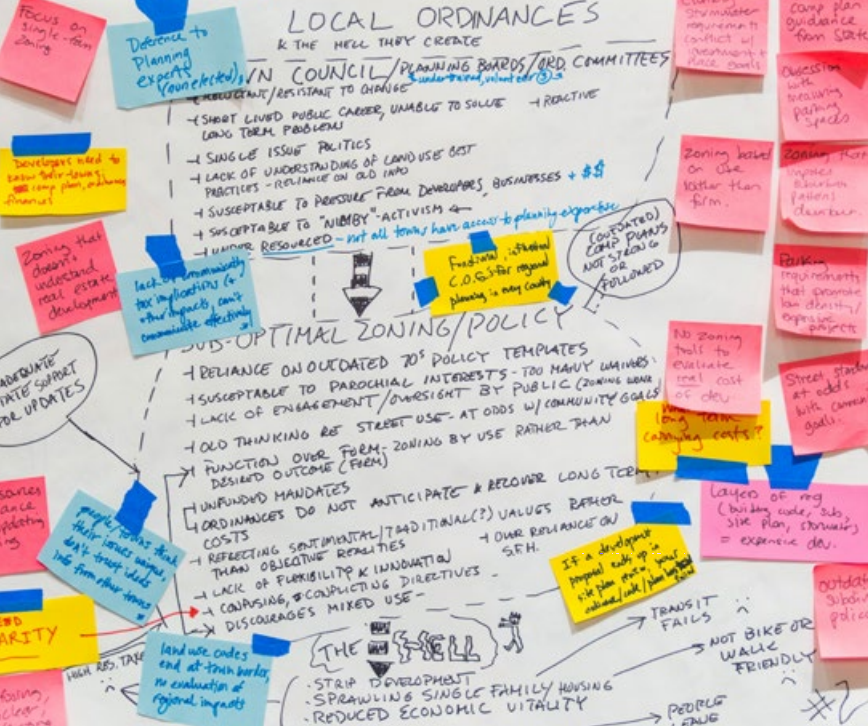 LOCAL ORDINANCES
& THE HELL THEY CREATE
COUNCIL/PLANNING BOARDS/ORD. COMMITTEES
RELUCTANT/RESISTANT TO CHANGE
SHORT LIVED PUBLIC CAREER, UNABLE TO SOLVE → REACTIVE
LONG TERM PROBLEMS
SINGLE ISSUE POLITICS
LACK OF UNDERSTANDING OF LAND USE BEST
PRACTICES - RELIANCE ON OLD INFO
SUSCEPTABLE TO PRESSURE FROM DEVELOPERS, BUSINESSES + $$
SUSCEPTABLE TO "NIMBY"-ACTIVISM
UNDER RESOURCED - not all towns have access to planning expertise
(OUTDATED)
COMP PLANS
NOT STRONG
OR
FOLLOWED
SUB-OPTIMAL ZONING/POLICY
RELIANCE ON OUTDATED 70s POLICY TEMPLATES
SUSCEPTABLE TO PAROCHIAL INTERESTS - TOO MANY WAIVERS
LACK OF ENGAGEMENT/OVERSIGHT BY PUBLIC (ZONING WONK)
OLD THINKING RE STREET USE - AT ODDS W/ COMMUNITY GOALS
FUNCTION OVER FORM - ZONING BY USE RATHER THAN
DESIRED OUTCOME (FORM)
UNFUNDED MANDATES
ORDINANCES DO NOT ANTICIPATE & RECOVER LONG TERM
COSTS
REFLECTING SENTIMENTAL/TRADITIONAL(?) VALUES RATHER
THAN OBJECTIVE REALITIES
OVER RELIANCE ON
S.F.H.
LACK OF FLEXIBILITY & INNOVATION
CONFUSING, CONFLICTING DIRECTIVES
DISCOURAGES MIXED USE
THE HELL
STRIP DEVELOPMENT
SPRAWLING SINGLE FAMILY HOUSING
REDUCED ECONOMIC VITALITY
TRANSIT
FAILS
NOT BIKE OR
WALK
FRIENDLY
PEOPLE
HIGH RES.
Focus on
single-fam
zoning
Deference to
Planning
experts
(unelected)
Developers need to
know their towns;
comp plan, ordinances,
finances
Zoning that
doesn't
understand
real estate
development
lack of community
tax implications (&
other impacts, can't
communicate effectively
Functional
C.O.G.s for regional
planning in every county
STATE SUPPORT
FOR UPDATES
people/towns think
their issues unique,
don't trust ideas
info from other towns
land use codes
end at town border,
no evaluation of
regional impacts
stormwater
requirements
conflict w/
investment +
place goals
comp plan
guidance
from State
Obsession
with
measuring
parking
spaces
Zoning based
on use
rather than
form.
Zoning that
Parking
requirements
that promote
low density/
expensive
projects
No zoning
tools to
evaluate
real cost
of dev
long term
carrying costs?
Street
at odds
with
goals.
Layers of reg
(building code, subs,
site plan, stormwater)
= expensive dev.
If a development
proposal ends up in
site plan review, your